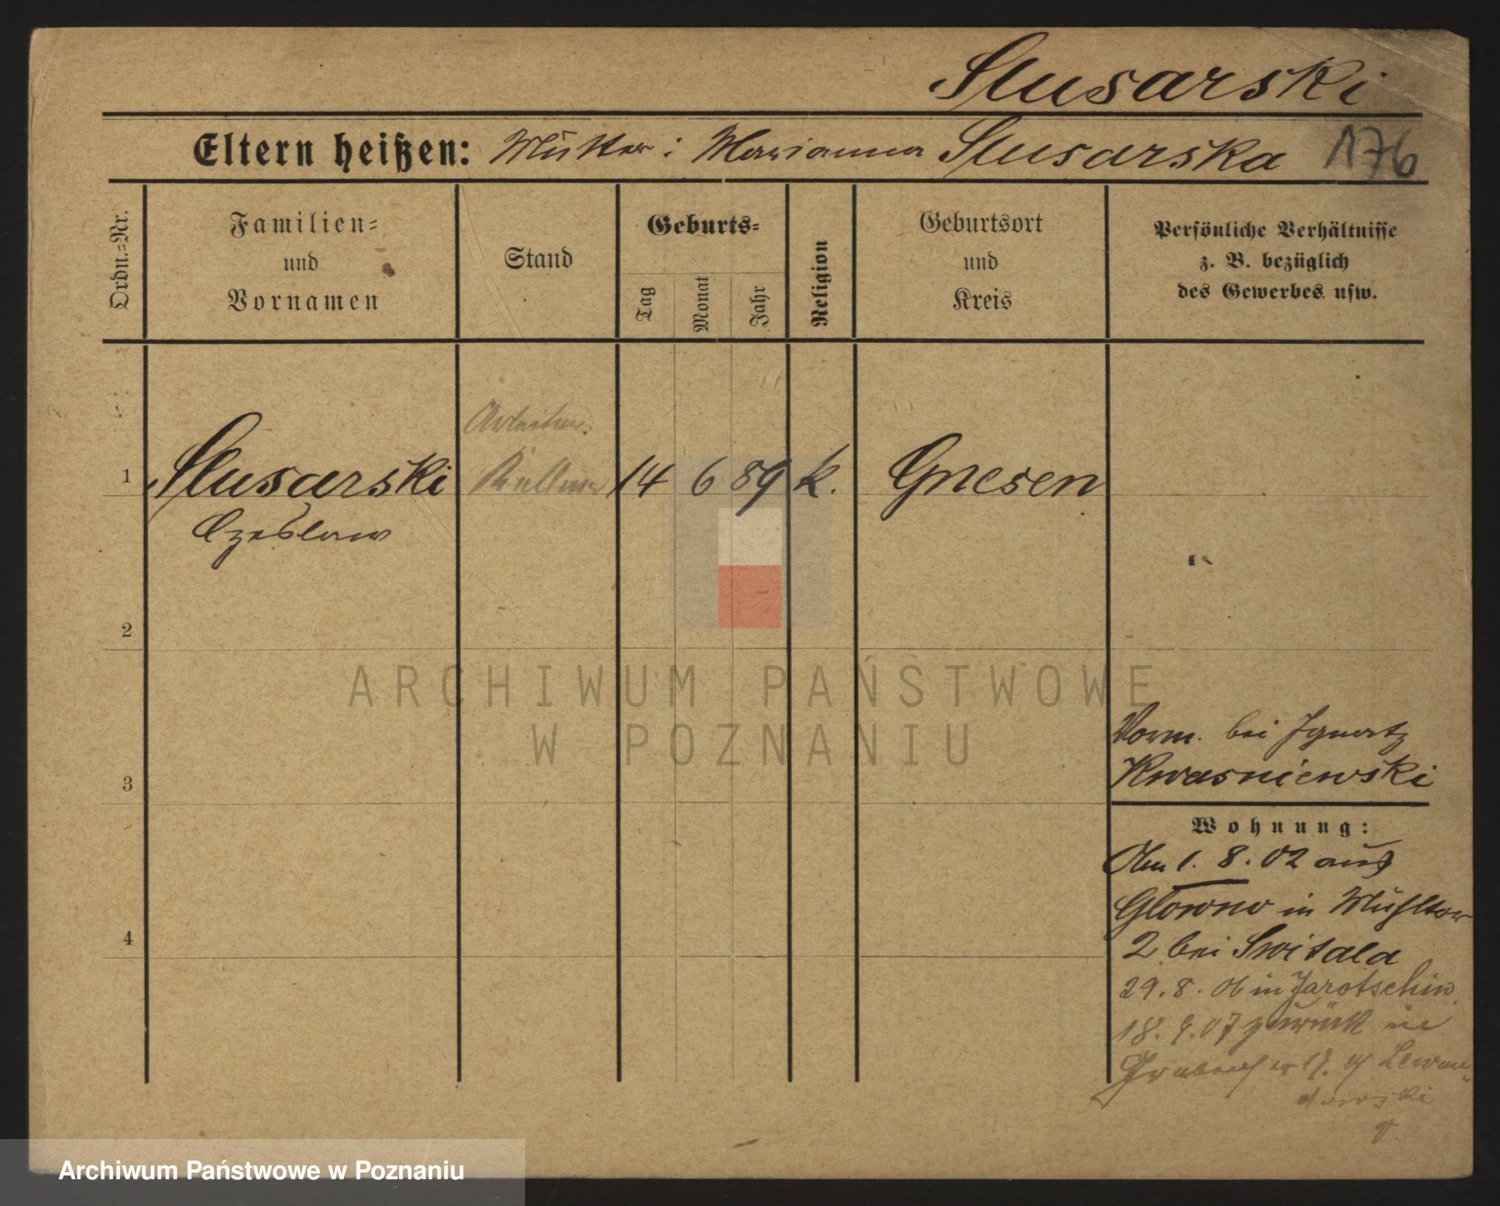 Slusarski
Eltern heißen: Mutter: Marianna Slusarska 176
Ordn.-Nr.
Familien-
und
Vornamen
Stand
Geburts-
Tag
Monat
Jahr
Religion
Geburtsort
und
Kreis
Persönliche Verhältnisse
z. B. bezüglich
des Gewerbes usw.
Arbeiter
1 Slusarski Kellner 14 6 89 k. Gnesen
Czeslaw
2
ARCHIWUM PAŃSTWOWE
W POZNANIU
3
Vorm. bei Ignatz
Kwasniewski
Wohnung:
Am 1. 8. 02 aus
Glowno in Mühltor
2 bei Switala
4
29. 8. 06 in Jarotschin
18. 9. 07 zurück in
17. Lewan-
dowski
Archiwum Państwowe w Poznaniu